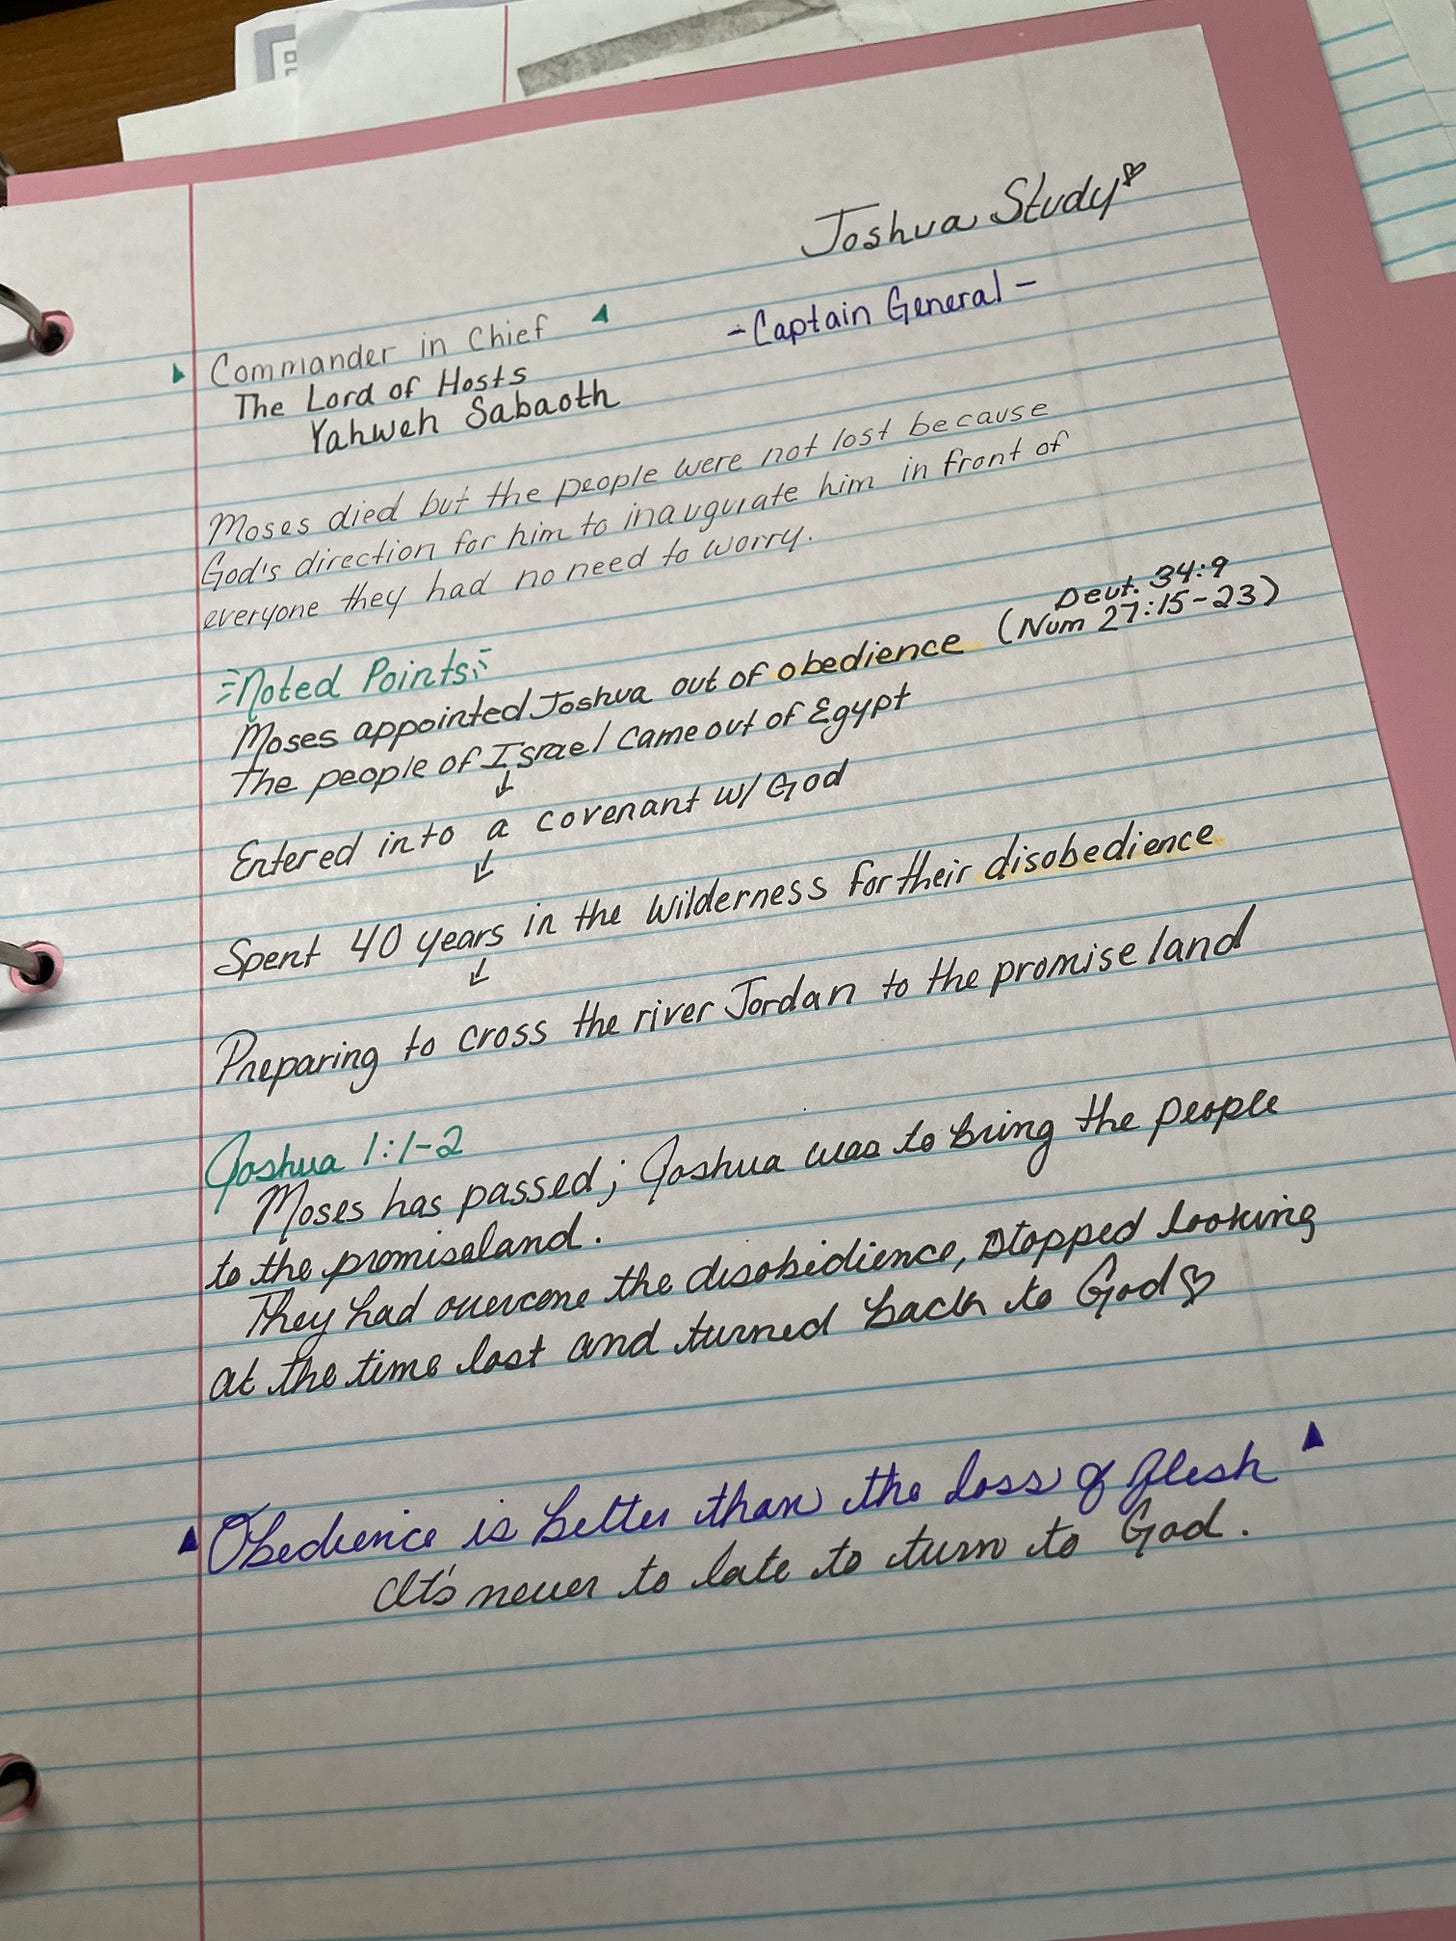 Joshua Study
- Captain General -
Commander in Chief
The Lord of Hosts
Yahweh Sabaoth
Moses died but the people were not lost because
God's direction for him to inaugurate him in front of
everyone they had no need to worry.
Noted Points
Deut. 34:9
Moses appointed Joshua out of obedience (Num 27:15-23)
The people of Israel came out of Egypt
↓
Entered into a covenant w/ God
↓
Spent 40 years in the wilderness for their disobedience
↓
Preparing to cross the river Jordan to the promise land
Joshua 1:1-2
Moses has passed; Joshua was to bring the people
to the promiseland.
They had overcone the disobidience, stopped looking
at the time lost and turned back to God♡
Obedience is better than the loss of flesh
It's never to late to turn to God.